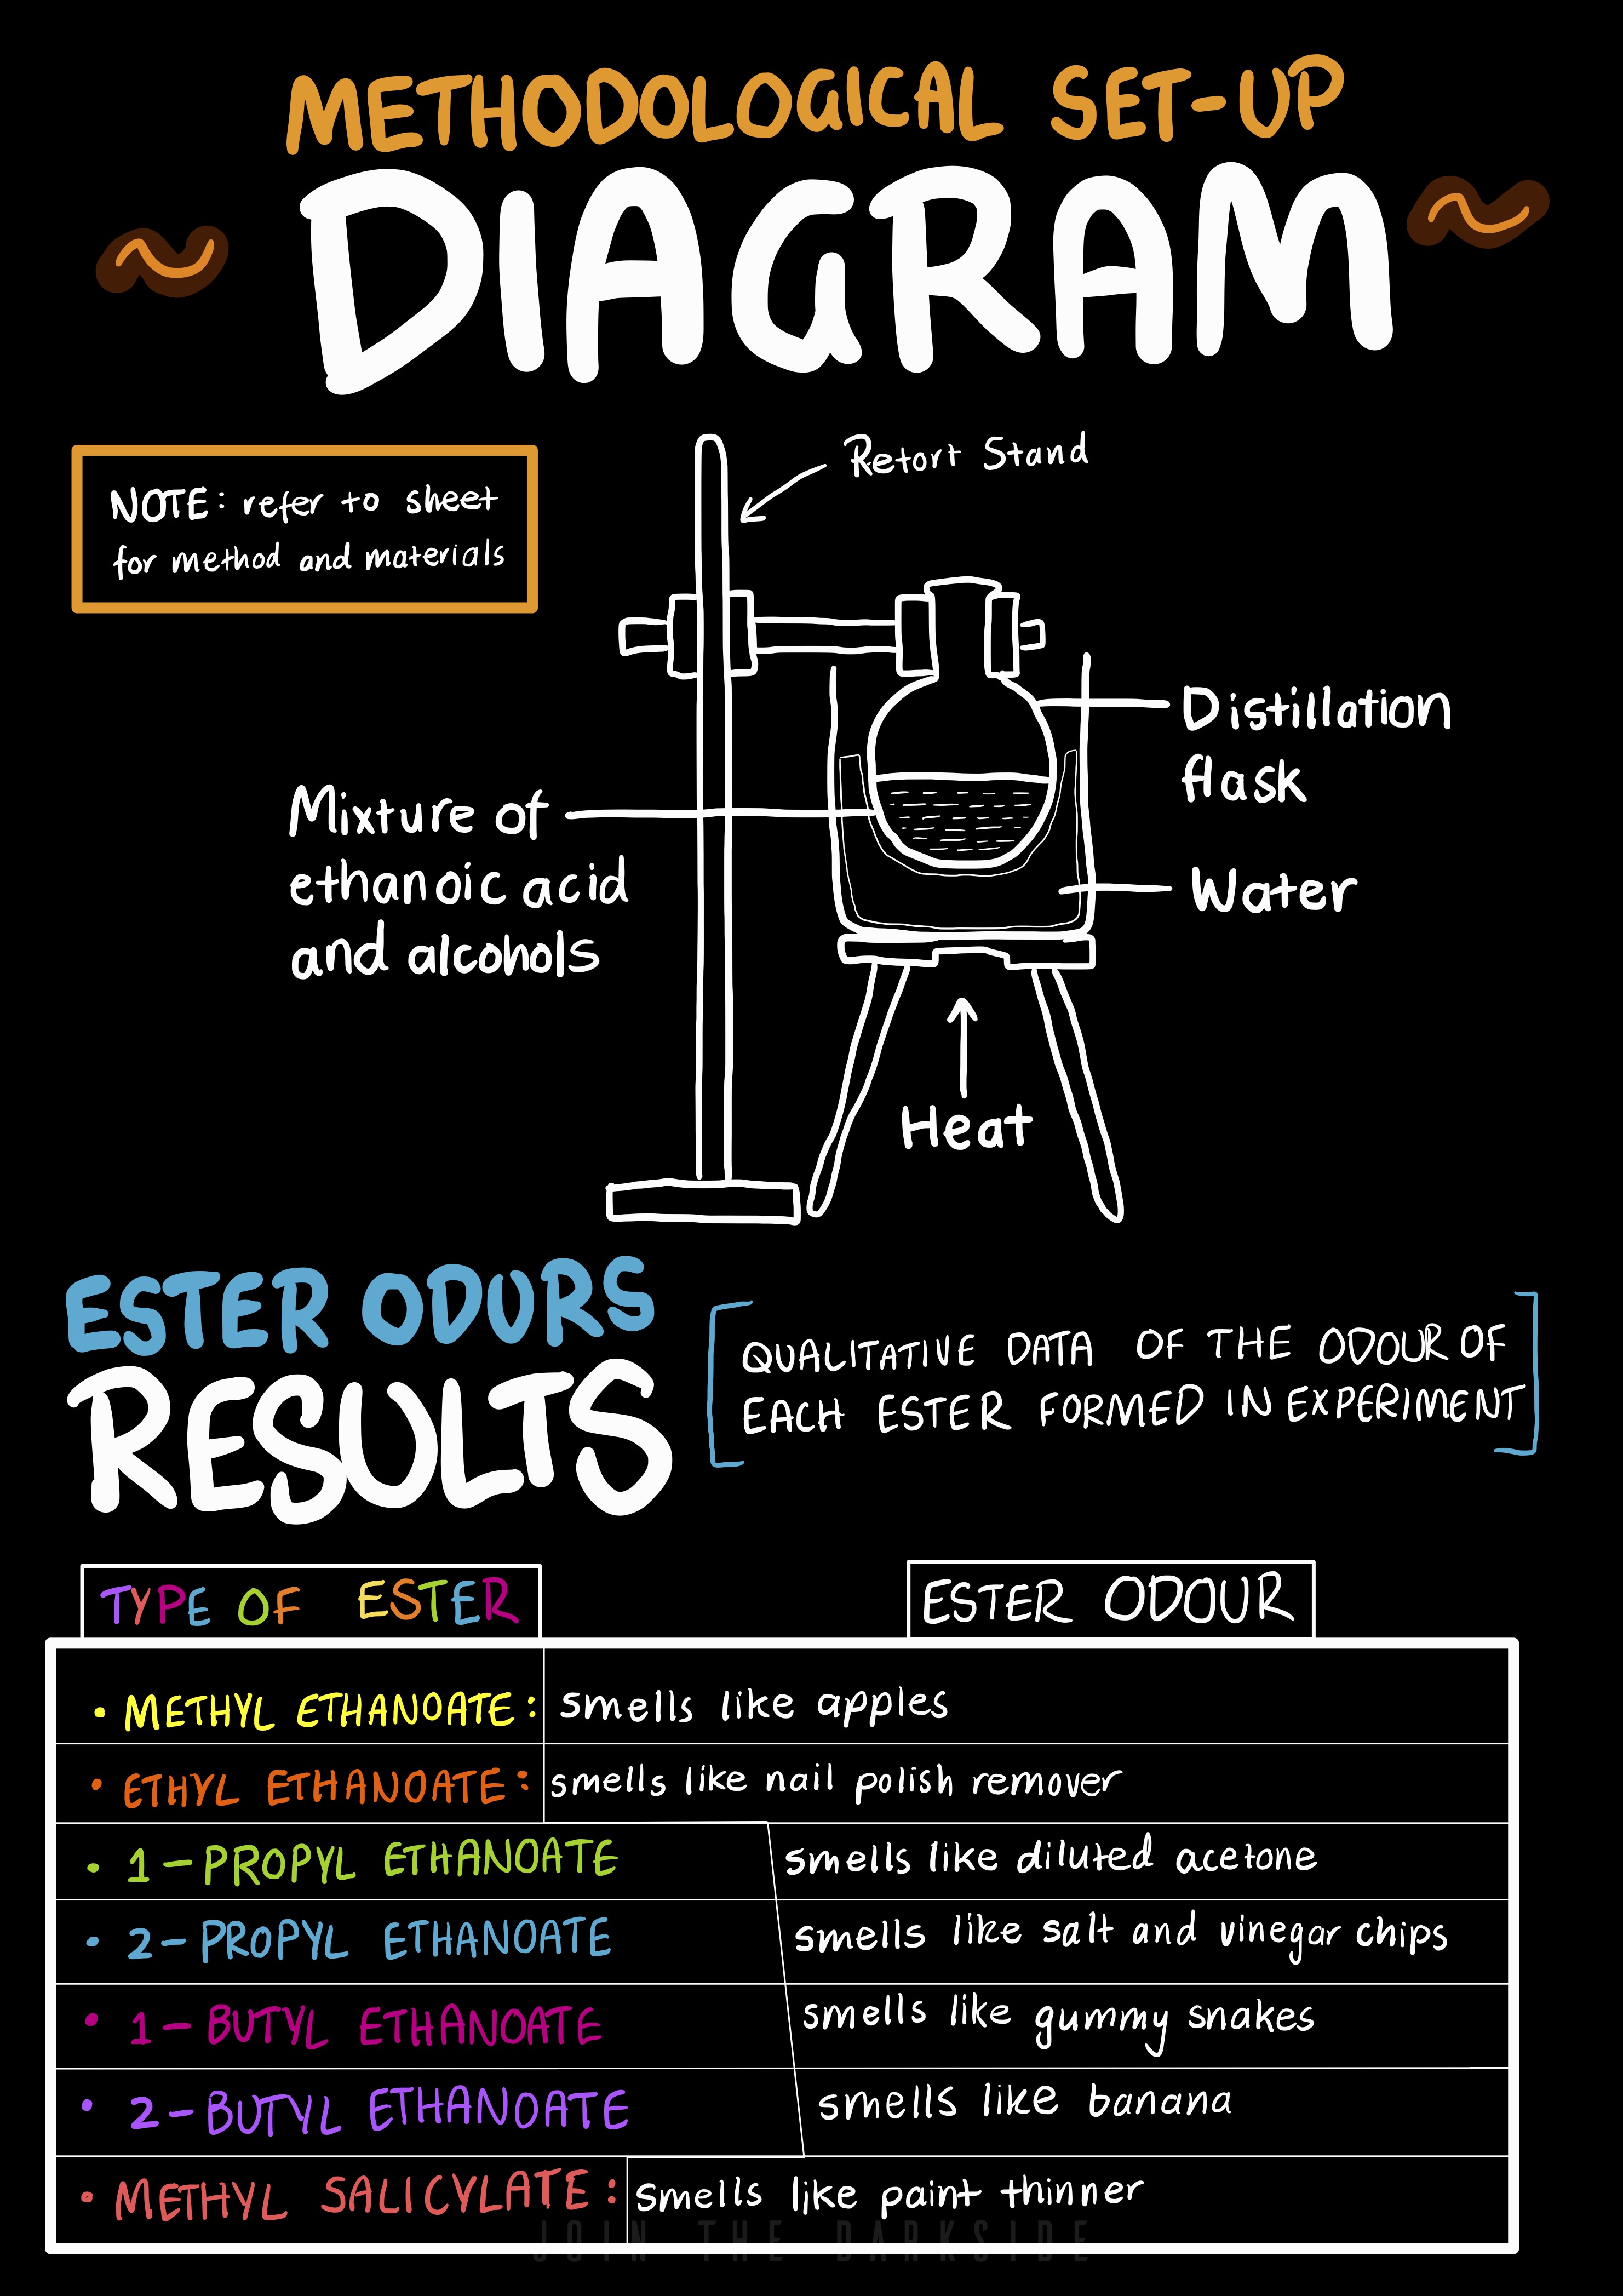 METHODOLOGICAL SET-UP
DIAGRAM
NOTE: refer to sheet
for method and materials
Retort Stand
Distillation
flask
Mixture of
ethanoic acid
and alcohols
Water
Heat
ESTER ODURS
RESULTS
QUALITATIVE DATA OF THE ODOUR OF
EACH ESTER FORMED IN EXPERIMENT
TYPE OF ESTER
ESTER ODOUR
• METHYL ETHANOATE: smells like apples
• ETHYL ETHANOATE: smells like nail polish remover
• 1-PROPYL ETHANOATE smells like diluted acetone
• 2-PROPYL ETHANOATE smells like salt and vinegar chips
• 1-BUTYL ETHANOATE smells like gummy snakes
• 2-BUTYL ETHANOATE smells like banana
• METHYL SALICYLATE: smells like paint thinner
JOIN THE DARKSIDE